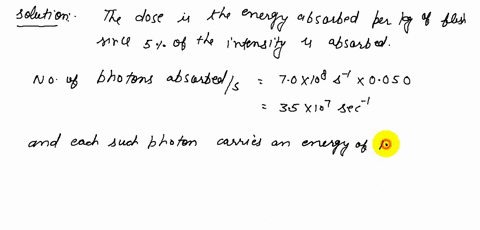 Solution:. The dose is the energy absorbed per kg of flesh
since 5% of the intensity is absorbed.
No. of photons absorbed/s = 7.0 x 10⁸ s⁻¹ x 0.050
= 3.5 x 10⁷ sec⁻¹
and each such photon carries an energy of